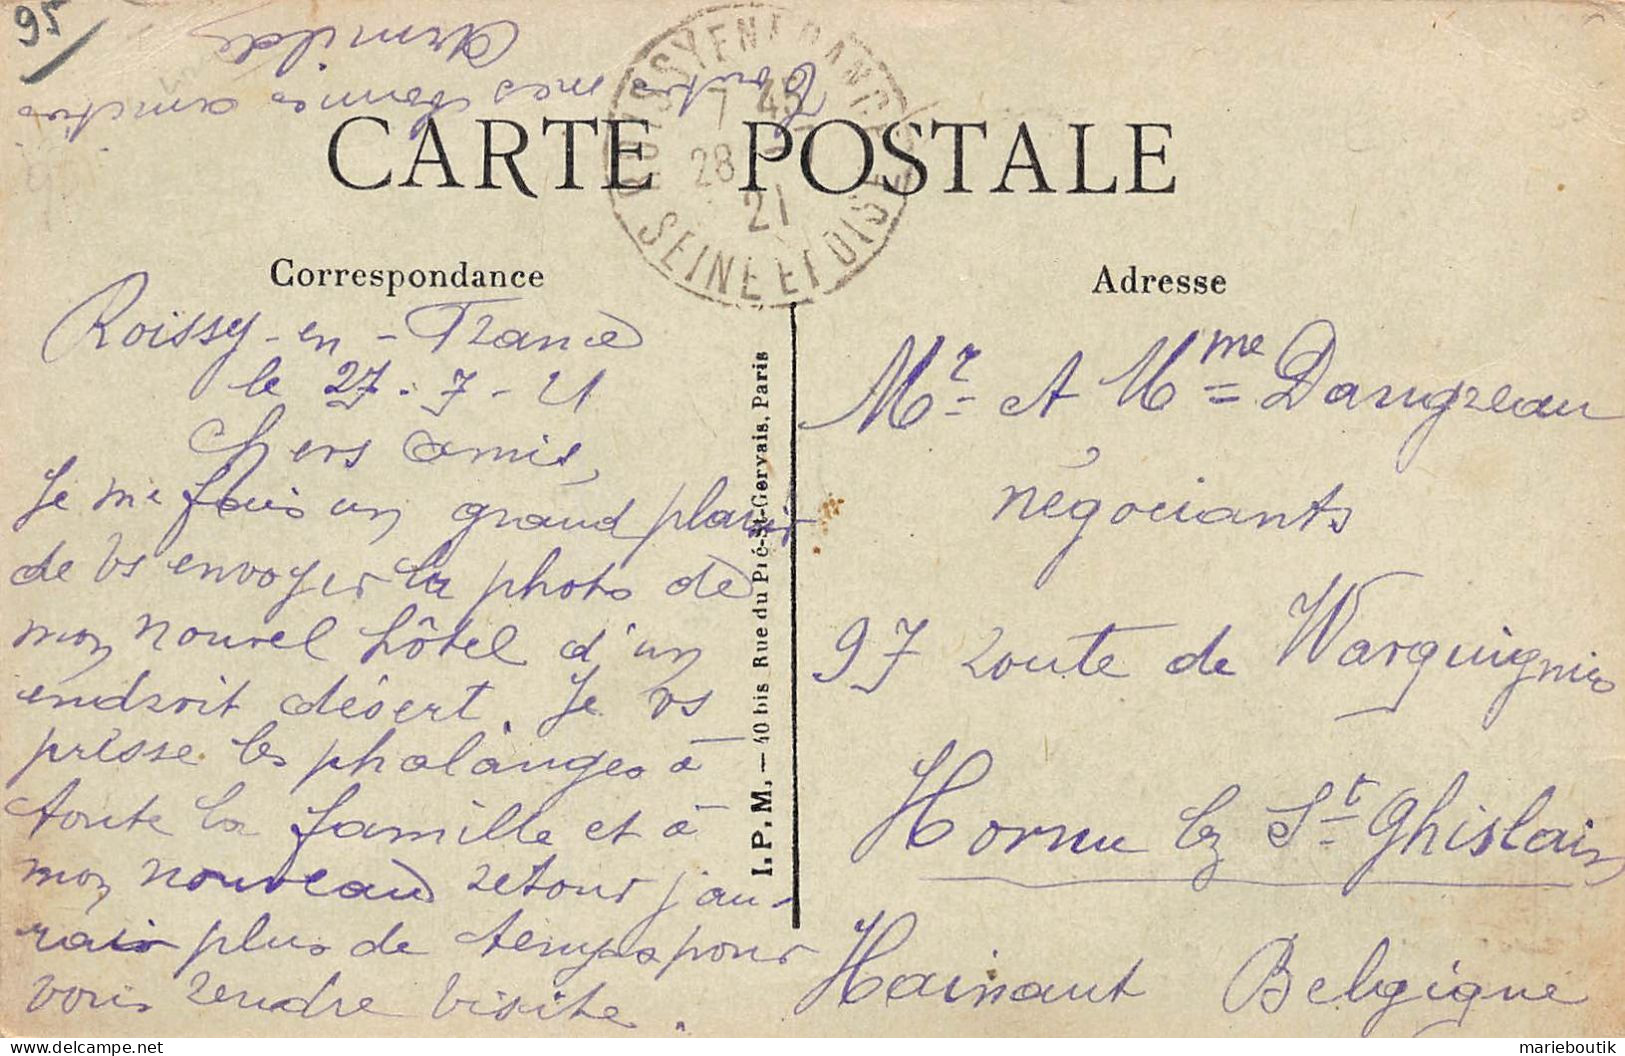 95/
Toutes mes bonnes amitiés
Armilde
ROISSY EN FRANCE
7 45
28
21
SEINE ET OISE
CARTE POSTALE
Correspondance
Adresse
Roissy-en-France
le 27-7-21
Chers amis,
Je me fais un grand plaisir
de vs envoyer la photo de
mon nouvel hôtel d'un
endroit désert. Je vs
presse les phalanges à
toute la famille et à
mon nouveau retour j'au-
rais plus de temps pour
vous rendre visite.
I.P.M. — 40 bis Rue du Pré-St-Gervais, Paris
Mr et Mme Daugreau
négociants
97 route de Warquignies
Hornu lez St Ghislain
Hainaut Belgique
delcampe.net
marieboutik